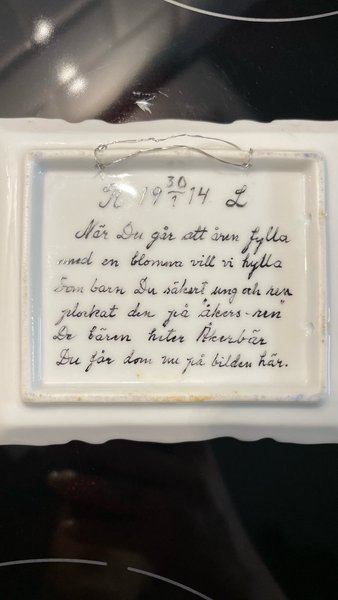 K 19 30/1 14 L
När Du går att åren fylla
med en blomma vill vi hylla
Som barn Du säkert ung och ren
plockat den på "åkers-ren"
De bären heter Åkerbär
Du får dom nu på bilden här.